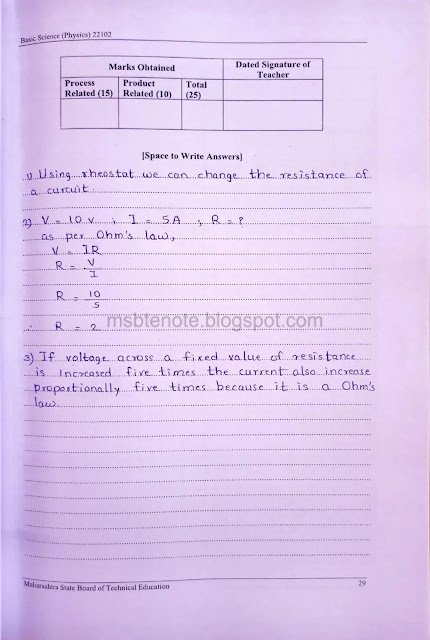 Basic Science (Physics) 22102
Marks Obtained
Dated Signature of Teacher
Process Related (15)
Product Related (10)
Total (25)
[Space to Write Answers]
1) Using rheostat we can change the resistance of
a curcuit.
2) V = 10 v ; I = 5A ; R = ?
as per Ohm's law,
V = IR
R = V/I
R = 10/5
∴ R = 2
msbtenote.blogspot.com
3) If voltage across a fixed value of resistance
is increased five times the current also increase
propostionally five times because it is a Ohm's
law.
Maharashtra State Board of Technical Education
29